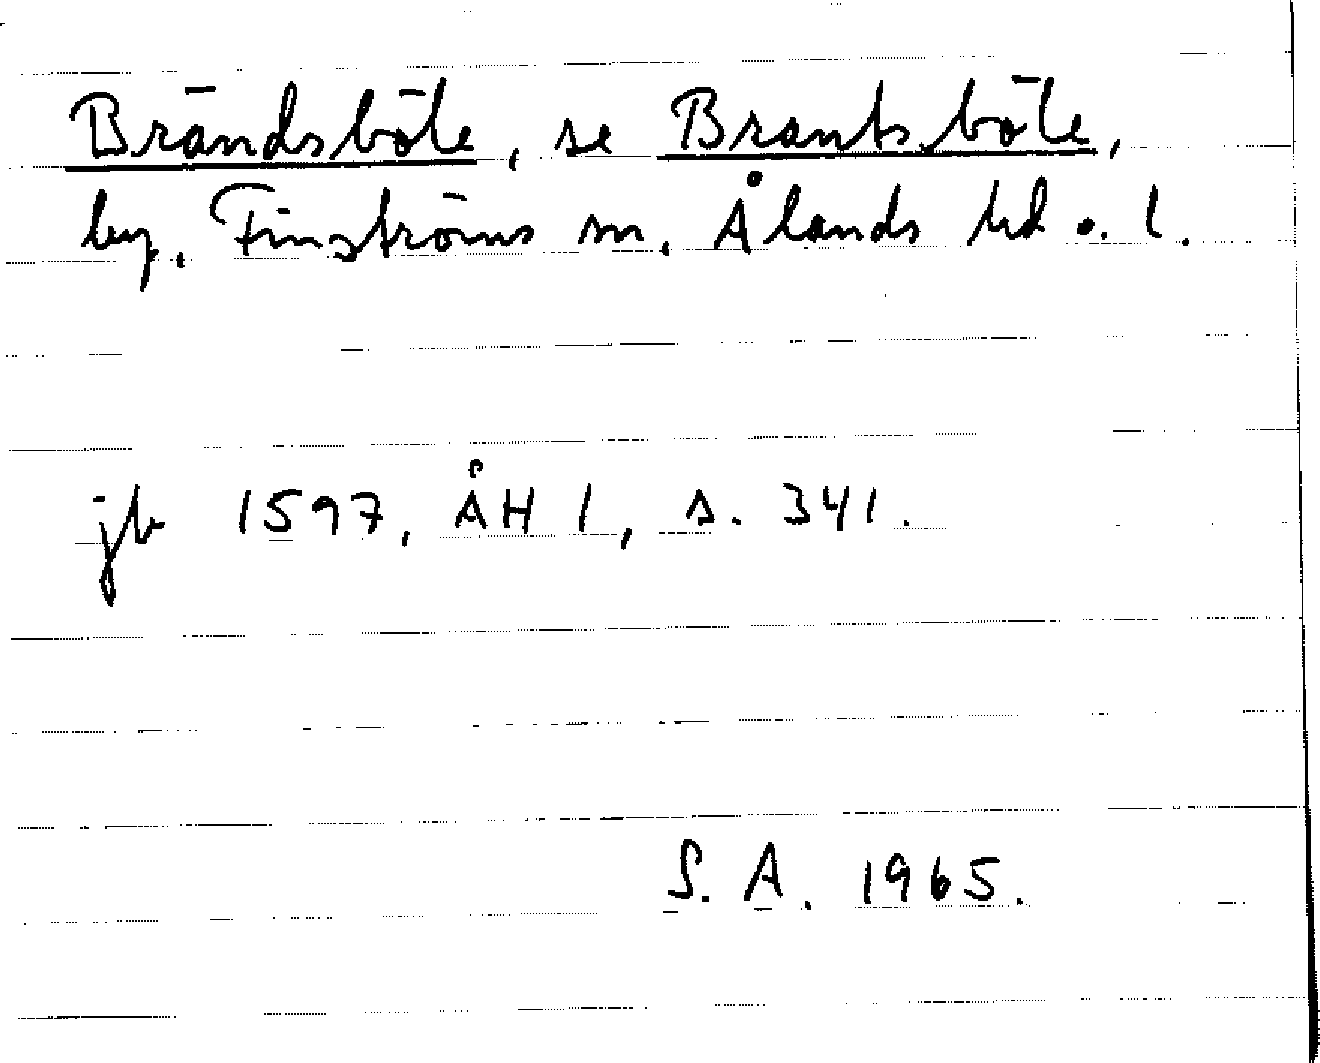 Brändsböle, se Brantsböle,
by, Finströms sn, Ålands hd o. l.
jb 1597, ÅH 1, s. 341.
S. A. 1965.